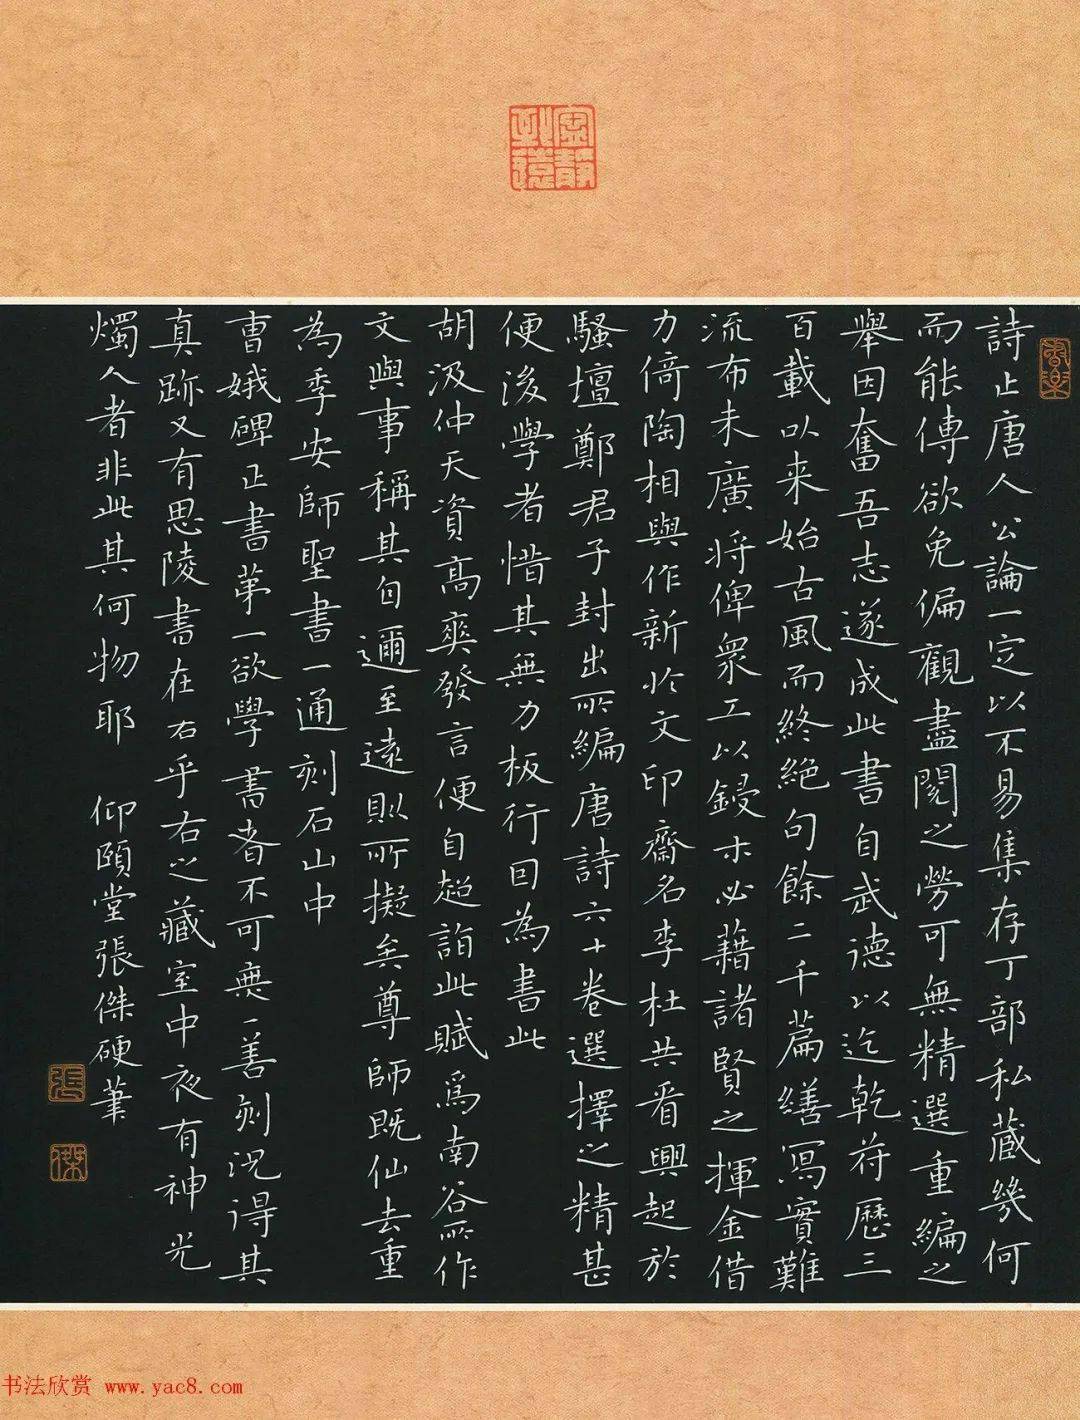 寧靜致遠
詩止唐人公論一定以不易集存丁部私藏幾何
而能傳欲免偏觀盡閱之勞可無精選重編之
舉因奮吾志遂成此書自武德以迄乾符歷三
百載以来始古風而終絶句餘二千篇繕寫實難
流布未廣将俾衆工以鋟木必藉諸賢之揮金借
力倚陶相與作新於文印齋名李杜共看興起於
騷壇鄭君子封出所編唐詩六十卷選擇之精甚
便後學者惜其無力板行回為書此
胡汲仲天資高爽發言便自超詣此賦爲南谷所作
文與事稱其自邇至遠則所擬矣尊師既仙去重
為季安師聖書一通刻石山中
曺娥碑正書第一欲學書者不可無一善刻況得其
真跡又有思陵書在右乎右之藏室中夜有神光
燭人者非此其何物耶 仰頤堂張傑硬筆
張
傑
书法欣赏 www.yac8.com